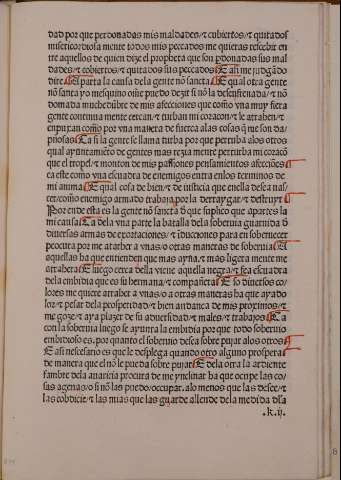 dad por que perdonadas mis maldades/⁊ cubiertos/⁊ quitados
misericordiosa mente todos mis peccados me quieras rescebir en
tre aquellos de quien dize el propheta que son ꝑdonadas sus mal
dades/⁊ cobiertos/⁊ quitados sus peccados E assi me judgãdo
dire Aparta la causa dela gente nõ sancta E qual otra gente
nõ sancta yo mesquino oñue puedo dezir si nõ la desenfrenada/⁊ nõ
domada muchedũbre de mis afecciones que como vna muy fiera
gente continua mente cercan/⁊ turban mi coraçon/⁊ le atrahen/⁊
enpuxan como por vna manera de fuerça alas cosas q̃ me son da
pñosas Ca si la gente se llama turba por que perturba alos otros
qual ayuntamiẽto de gentes mas rezia mente perturba mi coraçõ
que el tropel/⁊ monton de mis passiones pensamientos afecciões
ca este como vna escuadra de enemigos entra enlos terminos de
mi anima E qual cosa de bien/⁊ de iusticia que enella desea nas
cer/como enemigo armado trabaja por la derraygar/⁊ destruyr
Por ende esta es la gente nõ sancta d̃ que suplico que apartes la
mi causa Ca dela vna parte la batalla dela soberuia guarnida d̃
diuersas armas de exortaciones/⁊ iducciones para en soberuecer
procura por me atraher a vnas/o a otras maneras de soberuia A
aquellas ha que entienden que mas ayna/⁊ mas ligera mente me
atrahera E luego cerca della viene aquella negra/⁊ fea escuadra
dela embidia que es su hermana/⁊ compañera E so diuersos co
lores me quiere atraher a vnas/o a otras maneras ha que ayado
lor/⁊ pesar dela prosperidad/⁊ bien andança de mis proximos/⁊
me goze/⁊ aya plazer de su aduersidad/⁊ males/⁊ trabajos Ca
con la soberuia luego se ayunta la embidia por que todo soberuio
embidioso es. por quanto el soberuio desea sobre pujar alos otros
E assi necesario es que le desplega quando otro alguno prospera
de manera que el nõ le pueda sobre pujar E dela otra la ardiente
fambre dela auaricia procura de me ynclinar ha que ocupe las co
sas agenas/o si nõ las puedo/occupar. alo menos que las desee/⁊
las cobdicie/⁊ las mias que las guarde allende dela medida d̃sa
.k.ij.